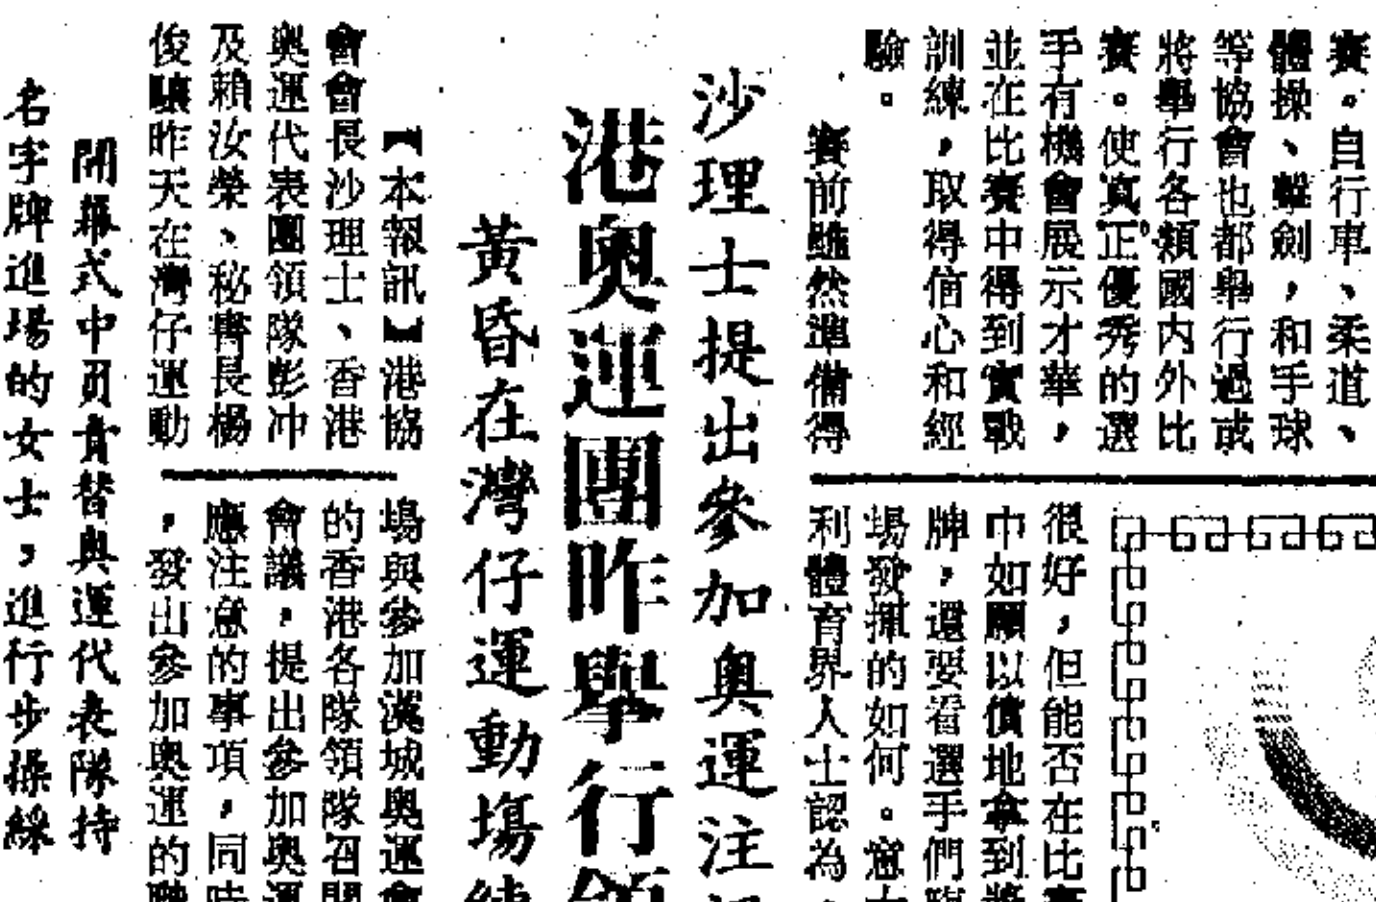 賽。自行車、柔道、
體操、擊劍，和手球
等協會也都舉行過或
將舉行各類國內外比
賽。使真正優秀的選
手有機會展示才華，
並在比賽中得到實戰
訓練，取得信心和經
驗。
賽前雖然準備得
很好，但能否在比賽
中如願以償地拿到獎
牌，還要看選手們臨
場發揮的如何。意大
利體育界人士認為，
沙理士提出參加奧運注
港奧運團昨舉行領
黃昏在灣仔運動場練
【本報訊】港協
會會長沙理士、香港
奧運代表團領隊彭冲
及賴汝榮、秘書長楊
俊驤昨天在灣仔運動
場與參加漢城奧運會
的香港各隊領隊召開
會議，提出參加奧運
應注意的事項，同時
，發出參加奧運的
開幕式中負責替奧運代表隊持
名字牌進場的女士，進行步操綵